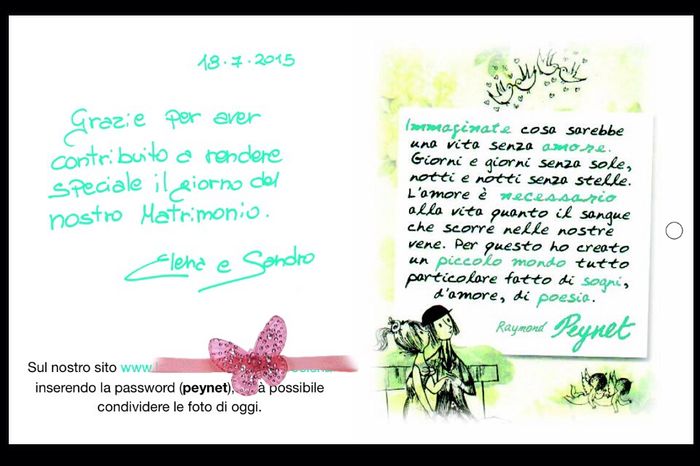 18.7.2015
Grazie per aver
contribuito a rendere
speciale il giorno del
nostro Matrimonio.
Elena e Sandro
Sul nostro sito www.
inserendo la password (peynet), possibile
condividere le foto di oggi.
Immaginate cosa sarebbe
una vita senza amore.
Giorni e giorni senza sole,
notti e notti senza stelle.
L'amore è necessario
alla vita quanto il sangue
che scorre nelle nostre
vene. Per questo ho creato
un piccolo mondo tutto
particolare fatto di sogni,
d'amore, di poesia.
Raymond Peynet